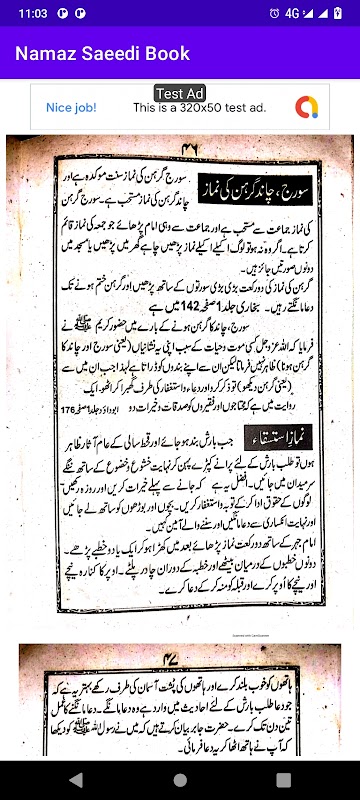 11:03
4G
Namaz Saeedi Book
Test Ad
Nice job!
This is a 320x50 test ad.
۴۶
سورج، چاند گرہن کی نماز
سورج گرہن کی نماز سنت موکدہ ہے اور
چاند گرہن کی نماز مستحب ہے۔ سورج گرہن
کی نماز جماعت سے مستحب ہے اور جماعت سے وہی امام پڑھائے جو جمعہ کی نماز قائم
کرتا ہے۔ اگر وہ نہ ہو تو لوگ اکیلے اکیلے نماز پڑھیں چاہے گھر میں پڑھیں یا مسجد میں
دونوں صورتیں جائز ہیں۔
گرہن کی نماز کی دو رکعت بڑی بڑی سورتوں کے ساتھ پڑھیں اور گرہن ختم ہونے تک
دعا مانگتے رہیں۔ بخاری جلد 1 صفحہ 142 میں ہے
سورج، چاند کا گرہن ہونے کے بارے میں حضور کریم ﷺ نے
فرمایا کہ اللہ عزوجل کسی موت و حیات کے سبب اپنی یہ نشانیاں (یعنی سورج اور چاند کا
گرہن ہونا) ظاہر نہیں فرماتا لیکن ان سے اپنے بندوں کو ڈراتا ہے لہذا جب ان میں سے
(یعنی گرہن دیکھو) تو ذکر کرو اور دعاء و استغفار کی طرف گھبرا کر اٹھو۔ ایک
روایت میں ہے کہ محتاجوں اور فقیروں کو صدقات و خیرات دو ابوداؤد جلد 1 صفحہ 176
نماز استسقاء
جب بارش بند ہو جائے اور قحط سالی کے عام آثار ظاہر
ہوں تو طلب بارش کے لئے پرانے کپڑے پہن کر نہایت خشوع و خضوع کے ساتھ ننگے
سر میدان میں جائیں۔ افضل یہ ہے کہ جانے سے پہلے خیرات کریں اور روزہ رکھیں۔
لوگوں کے حقوق ادا کر کے توبہ و استغفار کریں۔ بچوں اور بوڑھوں کو ساتھ لے جائیں
اور نہایت انکساری سے دعا مانگیں اور سننے والے آمین کہیں۔
امام جہر کے ساتھ دو رکعت نماز پڑھائے بعد میں کھڑا ہو کر ایک یا دو خطبے پڑھے۔
دونوں خطبوں کے درمیان بیٹھے اور خطبہ کے دوران چادر پلٹے۔ اوپر کا کنارہ نیچے
اور نیچے کا اوپر کرے اور قبلہ کو منہ کر کے دعا کرے۔
Scanned with CamScanner
۴۷
ہاتھوں کو خوب بلند کرے اور ہاتھوں کی پشت آسمان کی طرف رکھے بہتر یہ ہے کہ
جو دعا طلب بارش کے لئے احادیث میں وارد ہے وہ دعا مانگے۔ دعا مانگنے کا عمل
تین دن تک کرے۔ حضرت جابر بیان کرتے ہیں کہ میں نے رسول اللہ ﷺ کو دیکھا
کہ آپ نے ہاتھ اٹھا کر یہ دعا فرمائی۔